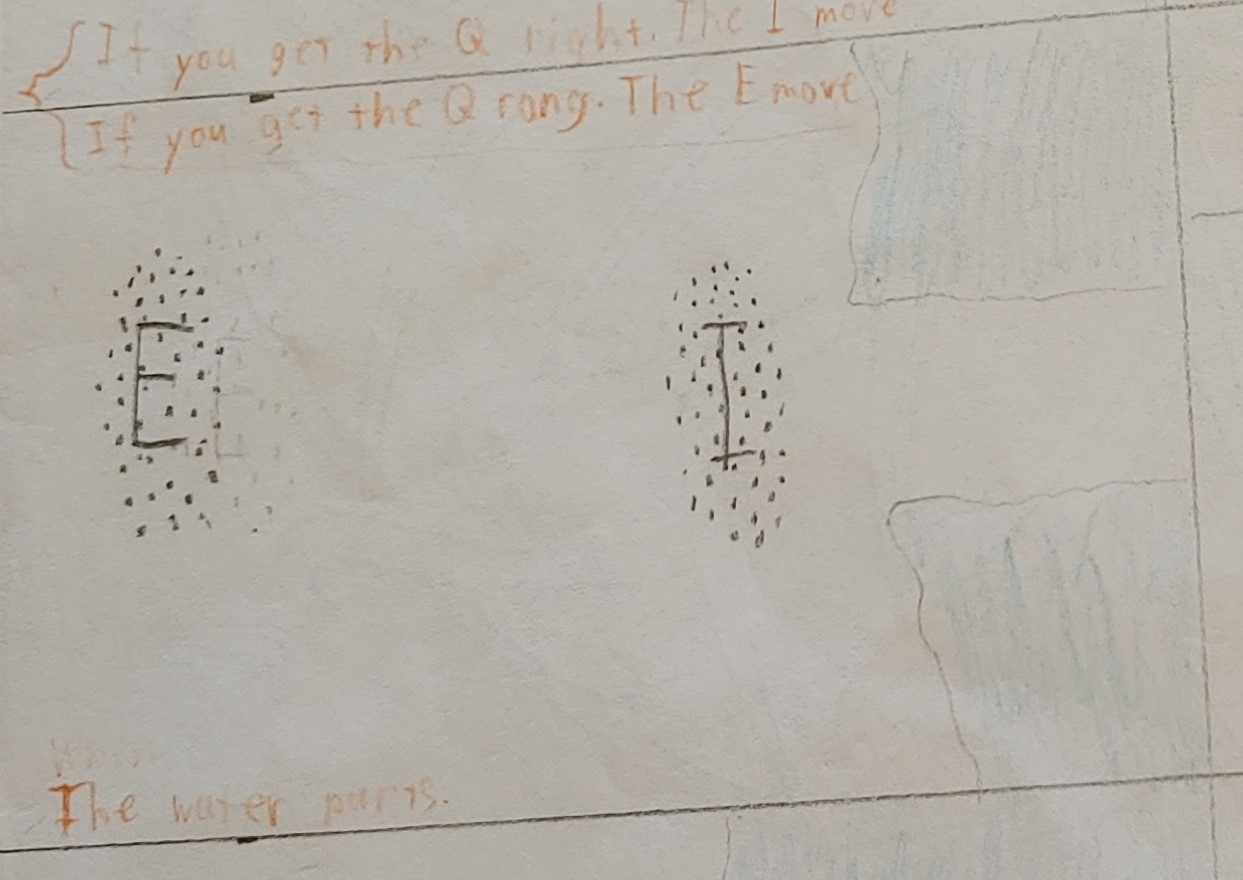 If you get the Q right. The I move
If you get the Q rong. The E move
E I
The water parts.